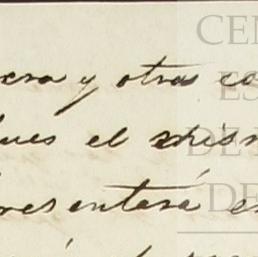 cera y otras co
ues el mism
resentará e
CEN
ES
DE
DE